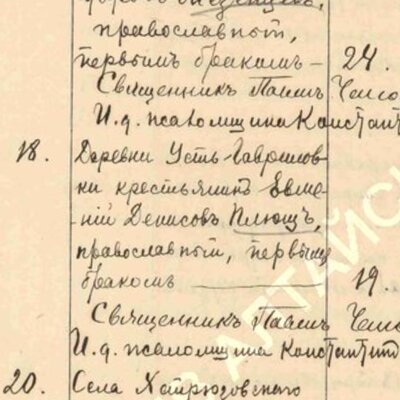 православный,
первымъ бракомъ — 24.
Священникъ Павелъ
И. д. псаломщика Константи
18. Деревни Усть-Гавриловки крестьянинъ Евме-
ній Денисовъ Плющъ,
православный, первымъ
бракомъ — 19.
Священникъ Павелъ
И. д. псаломщика Константи
20. Села Хайрюзовского
АЛТАЙС